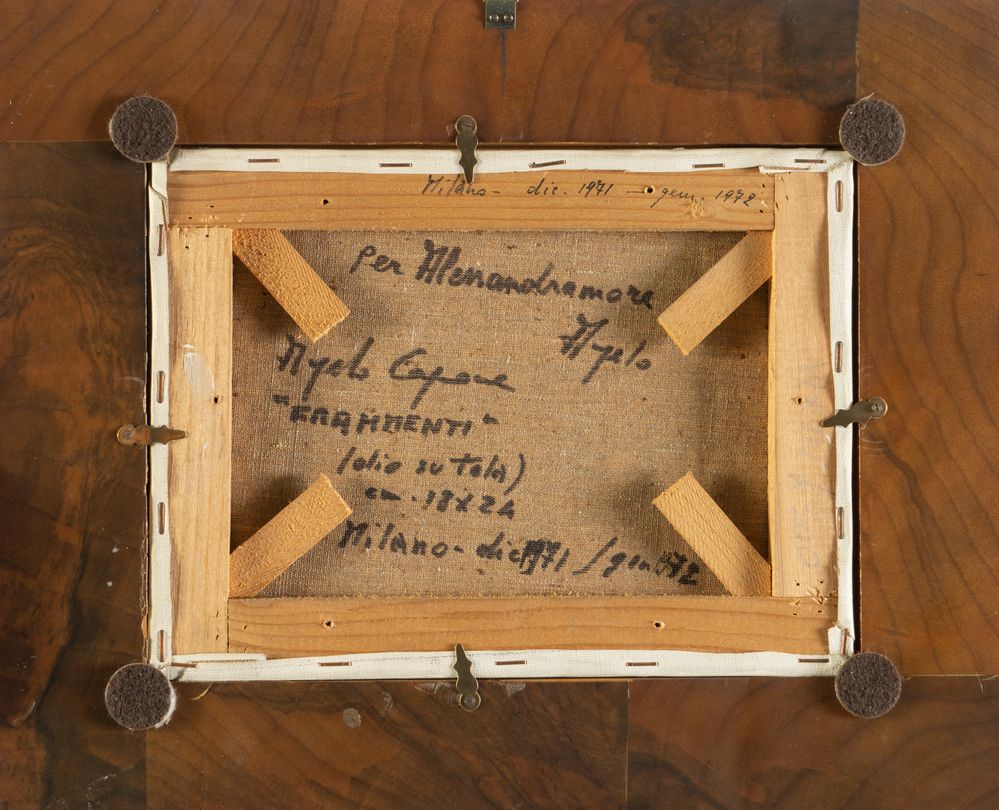 Milano - dic. 1971 - gen. 1972
per Alessandramore
Ayelo
Ayelo Capone
"FRAMMENTI"
(olio su tela)
cm. 18X24
Milano - dic 1971 / gen 1972